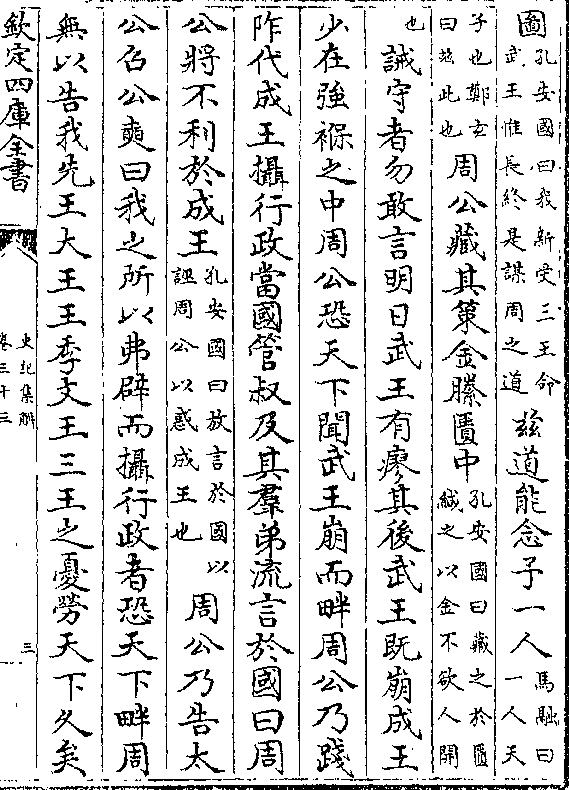 圖孔安國曰我新受三王命
武王惟長終是謀周之道
茲道能念予一人馬融曰
一人天
子也鄭玄
曰茲此也
周公藏其策金縢匱中孔安國曰藏之於匱
緘之以金不欲人開
也誡守者勿敢言明日武王有瘳其後武王既崩成王
少在強褓之中周公恐天下聞武王崩而畔周公乃踐
阼代成王攝行政當國管叔及其羣弟流言於國曰周
公將不利於成王孔安國曰放言於國以
誣周公以惑成王也
周公乃告太
公召公奭曰我之所以弗辟而攝行政者恐天下畔周
無以告我先王大王王季文王三王之憂勞天下久矣
欽定四庫全書
史記集解
卷三十三
三